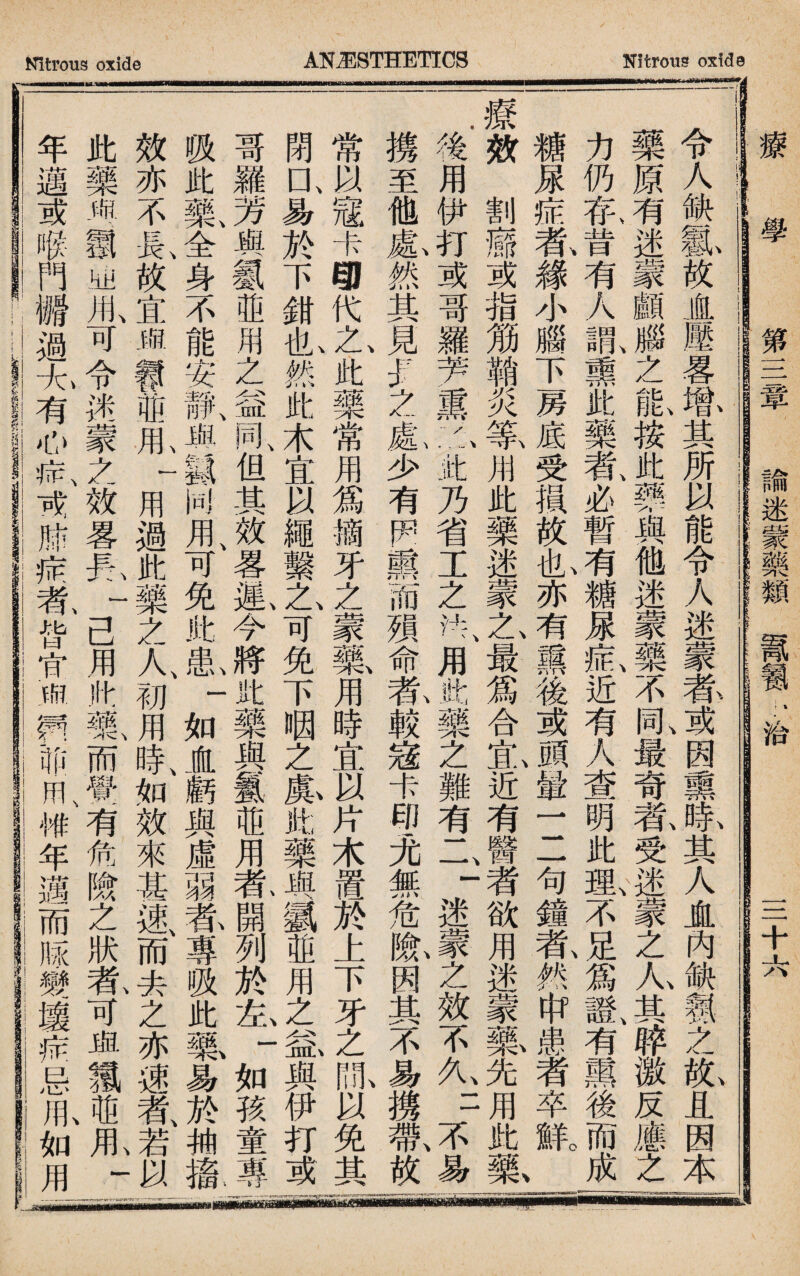 Nitrous oxide ANÆSTHETICS Nitrous oxide
療學 第三章 論迷蒙藥類 治 三十六
令人缺氱、故血壓畧增、其所以能令人迷蒙者、或因熏時、其人血內缺氱之故、且因本
藥原有迷蒙顱腦之能、按此藥與他迷蒙藥不同、最奇者、受迷蒙之人、其睟激反應之
力仍存、昔有人謂、熏此藥者、必暫有糖尿症、近有人查明此理、不足爲證、有熏後而成
糖尿症者、緣小腦下房底受損故也、亦有熏後或頭暈一二句鐘者、然中患者卒鮮。
療效 割癤或指筋鞘炎等、用此藥迷蒙之、最爲合宜、近有醫者欲用迷蒙藥、先用此藥、
後用伊打或哥羅芳熏之、此乃省工之法、用此藥之難有二、一迷蒙之效不久、二不易
携至他處、然其見長之處、少有因熏而殞命者、較寇卡印尤無危險、因其不易携帶、故
常以寇卡印代之、此藥常用爲摘牙之蒙藥、用時宜以片木置於上下牙之間、以免其
閉口、易於下鉗也、然此木宜以繩繫之、可免下咽之虞、此藥與氱並用之益、與伊打或
哥羅芳與氱並用之益同、但其效畧遲、今將此藥與氱並用者、開列於左、一如孩童專
吸此藥、全身不能安靜、與氱同用、可免此患、一如血虧與虛弱者、專吸此藥、易於抽搐、
效亦不長、故宜與氱並用、一用過此藥之人、初用時、如效來甚速、而去之亦速者、若以
此藥與氱並用、可令迷蒙之效畧長、一己用此藥、而覺有危險之狀者、可與氱並用、一
年邁或喉門榍過大、有心症、或肺症者、皆宜與氱並用、惟年邁而脉變壞症忌用、如用